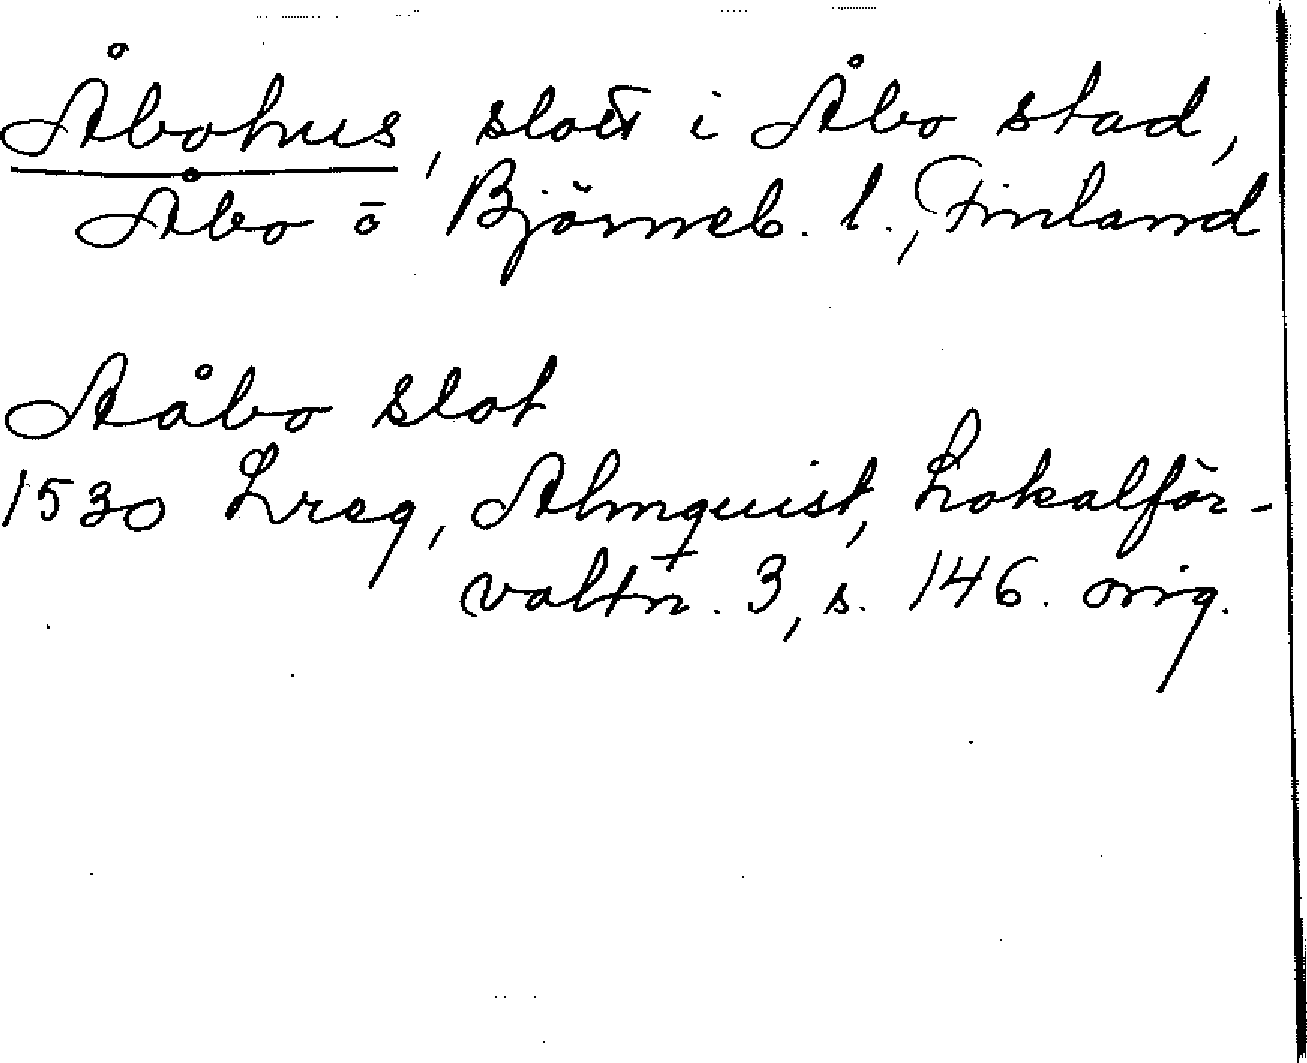 Åbohus, slott i Åbo stad,
Åbo ö Björneb. l., Finland
Aåbo slot
1530 Lreg, Almquist, Lokalför-
valtn. 3, s. 146. orig.